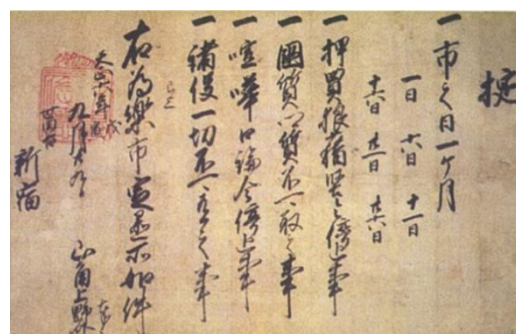 掟
一 市之日一ヶ月
一日 六日 十一日
十六日 廿一日 廿六日
一 押買狼藉堅令停止事
一 國質郷質不可取之事
一 喧嘩口論令停止事
一 諸役一切不可有之事
已上
右為樂市定置所如件
天正六年戊寅
九月廿九日
山角上野
新宿